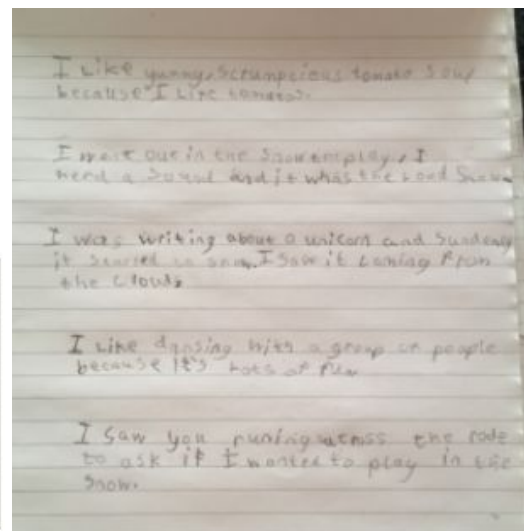 I Like yummy, scrumpcious tomato Soup
because I Like tomatos.
I went out in the Snow to play, I
heed a Sound and it whas the Snow
I was writing about a unicorn and Sundenly
it started to snow. I Saw it coming from
the clouds
I Like dansing with a group of people
because It's lots of fun
I Saw you runing across the rode
to ask if I wanted to play in the
Snow.